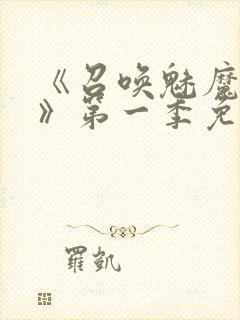 《召唤魅魔
》第一季免
羅凱